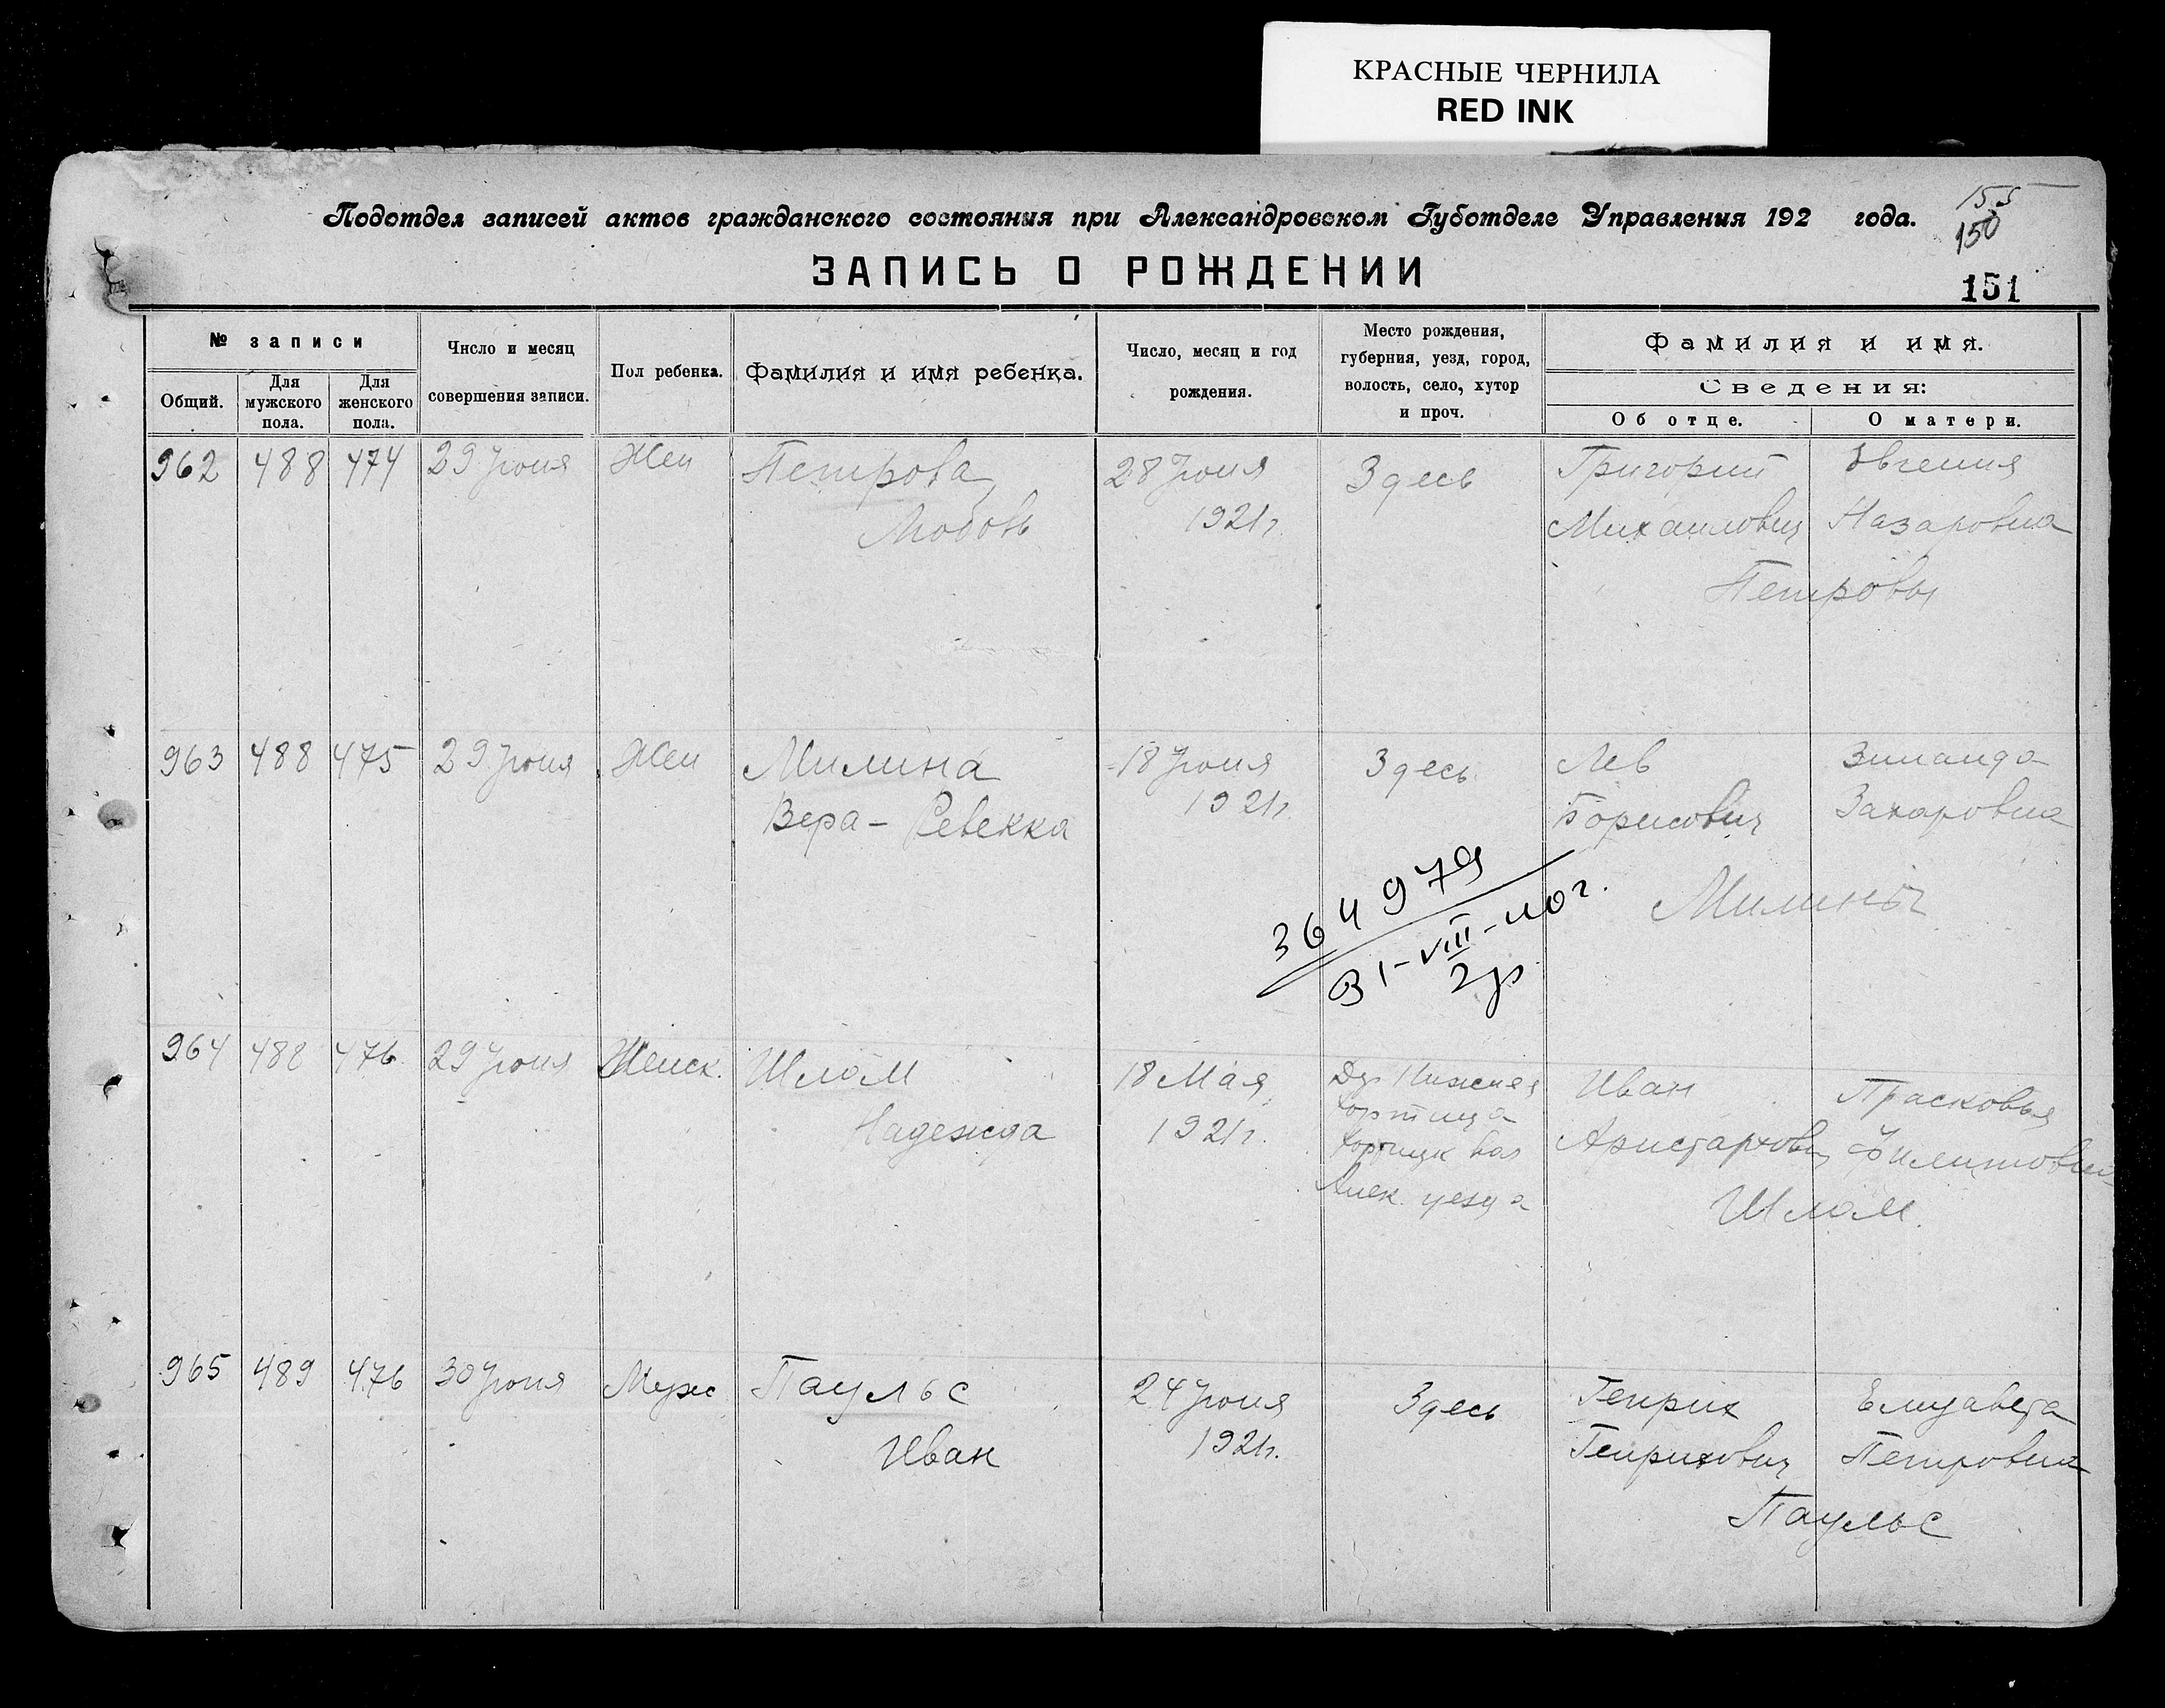 КРАСНЫЕ ЧЕРНИЛА
RED INK
Подотдел записей актов гражданского состояния при Александровском Губотделе Управления 192 года.
155
150
ЗАПИСЬ О РОЖДЕНИИ
151
№ записи
Общий.
Для мужского пола.
Для женского пола.
Число и месяц совершения записи.
Пол ребенка.
Фамилия и имя ребенка.
Число, месяц и год рождения.
Место рождения, губерния, уезд, город, волость, село, хутор и проч.
Фамилия и имя.
Сведения:
Об отце.
О матери.
962 488 474 29 Июня Жен Петрова 28 Июня Здесь Григорий Евгения
Любовь 1921г. Михаилович Назаровна
Петровы
963 488 475 29 Июня Жен Милина 18 Июня Здесь Лев Зинаида
Вера - Ревекка 1921г. Борисович Захаровна
Милины
364979
31-VIII-40г.
2р
964 488 476 29 Июня Женск. Шлам 18 Мая Др. Нижняя Иван Прасковья
Надежда 1921г. Хортица Аристархович Филиповна
Хортицк вол
Алек. уезда Шлам.
965 489 476 30 Июня Муж Паульс 24 Июня Здесь Генрих Елизавета
Иван 1921г. Генрихович Петровна
Паульс